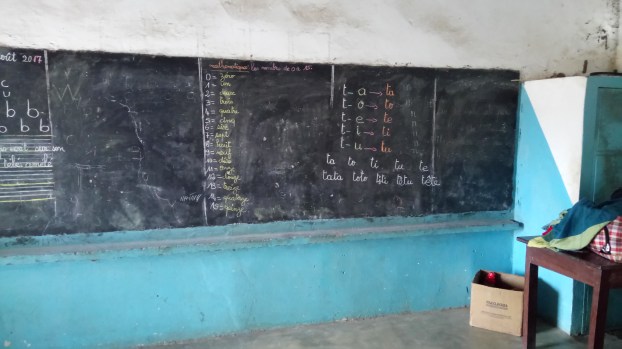 août 2017
c
u
b b b
b b b b
mathématique: les nombres de 0 à 15
0 = zéro
1 = un
2 = deux
3 = trois
4 = quatre
5 = cinq
6 = six
7 = sept
8 = huit
9 = neuf
10 = dix
11 = onze
12 = douze
13 = treize
14 = quatorze
15 = quinze
t - a → ta
t - o → to
t - e → te
t - i → ti
t - u → tu
ta to ti tu te
tata toto titi têtu tête